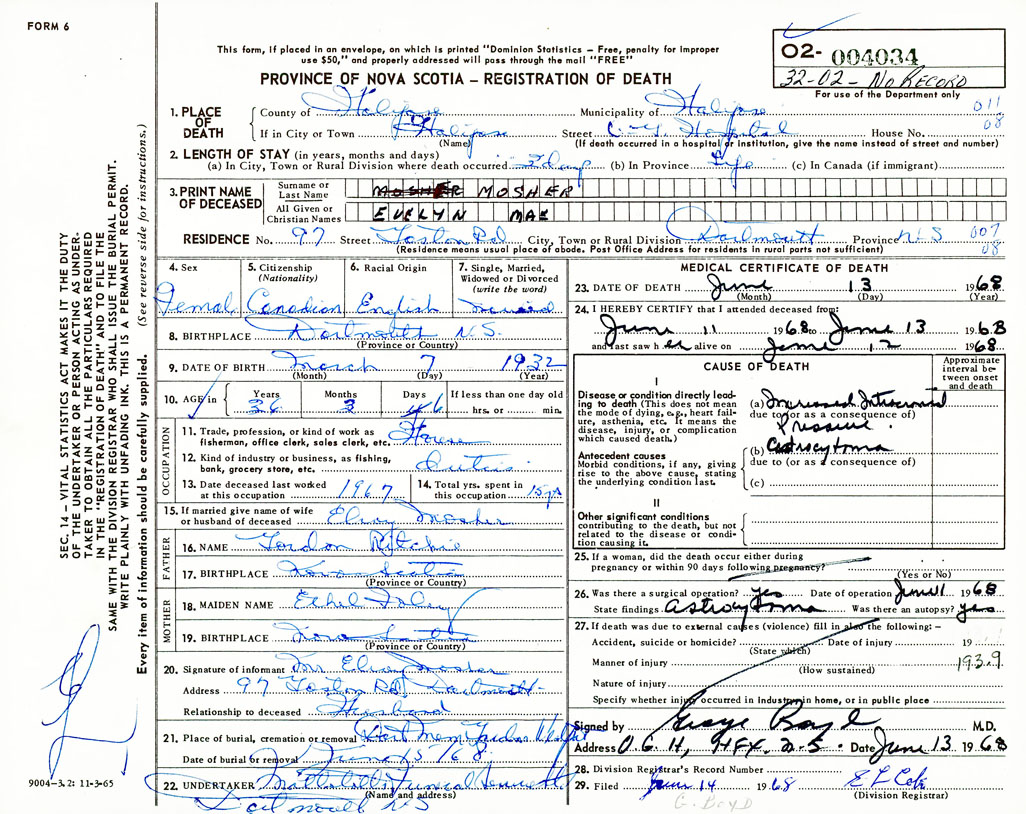 FORM 6
This form, if placed in an envelope, on which is printed "Dominion Statistics – Free, penalty for improper
use $50," and properly addressed will pass through the mail "FREE"
PROVINCE OF NOVA SCOTIA – REGISTRATION OF DEATH
O2- 004034
32-02- NO RECORD
For use of the Department only
1. PLACE OF DEATH
County of Halifax Municipality Halifax 011
If in City or Town Halifax Street Hospital House No. 08
(Name) (If death occurred in a hospital or institution, give the name instead of street and number)
2. LENGTH OF STAY (in years, months and days)
(a) In City, Town or Rural Division where death occurred 3 days (b) In Province Life (c) In Canada (if immigrant)
3. PRINT NAME OF DECEASED
Surname or Last Name MOSHER MOSHER
All Given or Christian Names EVELYN MAE
RESIDENCE No. 97 Street Rd City, Town or Rural Division Dartmouth Province N.S 007
(Residence means usual place of abode. Post Office Address for residents in rural parts not sufficient) 08
4. Sex 5. Citizenship (Nationality) 6. Racial Origin 7. Single, Married, Widowed or Divorced (write the word)
Femal Canadian English Married
8. BIRTHPLACE Dartmouth N.S.
(Province or Country)
9. DATE OF BIRTH March 7 1932
(Month) (Day) (Year)
10. AGE in Years Months Days If less than one day old
36 3 6 hrs. or min.
OCCUPATION
11. Trade, profession, or kind of work as fisherman, office clerk, sales clerk, etc. House
12. Kind of industry or business, as fishing, bank, grocery store, etc. Duties
13. Date deceased last worked at this occupation 1967 14. Total yrs. spent in this occupation 15 yrs
15. If married give name of wife or husband of deceased Elroy Mosher
FATHER
16. NAME Gordon Ritchie
17. BIRTHPLACE Nova Scotia
(Province or Country)
MOTHER
18. MAIDEN NAME Ethel Foley
19. BIRTHPLACE Nova Scotia
(Province or Country)
20. Signature of informant Mr Elroy Mosher
Address 97 Rd Dartmouth
Relationship to deceased Husband
21. Place of burial, cremation or removal Mem Gardens
Date of burial or removal June 15/68
22. UNDERTAKER Funeral
(Name and address)
Dartmouth NS
MEDICAL CERTIFICATE OF DEATH
23. DATE OF DEATH June 13 1968
(Month) (Day) (Year)
24. I HEREBY CERTIFY that I attended deceased from:
June 11 1968 to June 13 1968
and last saw her alive on June 12 1968
CAUSE OF DEATH
Approximate interval between onset and death
I
Disease or condition directly leading to death (This does not mean the mode of dying, e.g., heart failure, asthenia, etc. It means the disease, injury, or complication which caused death.)
(a) Increased Intracranial
due to (or as a consequence of)
Pressure.
Antecedent causes
Morbid conditions, if any, giving rise to the above cause, stating the underlying condition last.
(b) astrocytoma
due to (or as a consequence of)
(c)
II
Other significant conditions contributing to the death, but not related to the disease or condition causing it.
25. If a woman, did the death occur either during
pregnancy or within 90 days following pregnancy?
(Yes or No)
26. Was there a surgical operation? yes Date of operation June 11 1968
State findings astrocytoma Was there an autopsy? yes
27. If death was due to external causes (violence) fill in also the following:–
Accident, suicide or homicide? Date of injury 19
(State which)
Manner of injury 193.9
(How sustained)
Nature of injury
Specify whether injury occurred in Industry, in home, or in public place
Signed by George Boyd M.D.
Address HFX. N.S. Date June 13 1968
28. Division Registrar's Record Number
29. Filed June 14 1968
G. BOYD (Division Registrar)
SEC. 14 – VITAL STATISTICS ACT MAKES IT THE DUTY
OF THE UNDERTAKER OR PERSON ACTING AS UNDER-
TAKER TO OBTAIN ALL THE PARTICULARS REQUIRED
IN THE "REGISTRATION OF DEATH" AND TO FILE THE
SAME WITH THE DIVISION REGISTRAR WHO SHALL ISSUE THE BURIAL PERMIT.
WRITE PLAINLY WITH UNFADING INK. THIS IS A PERMANENT RECORD.
Every item of information should be carefully supplied. (See reverse side for instructions.)
9004-3.2: 11-3-65